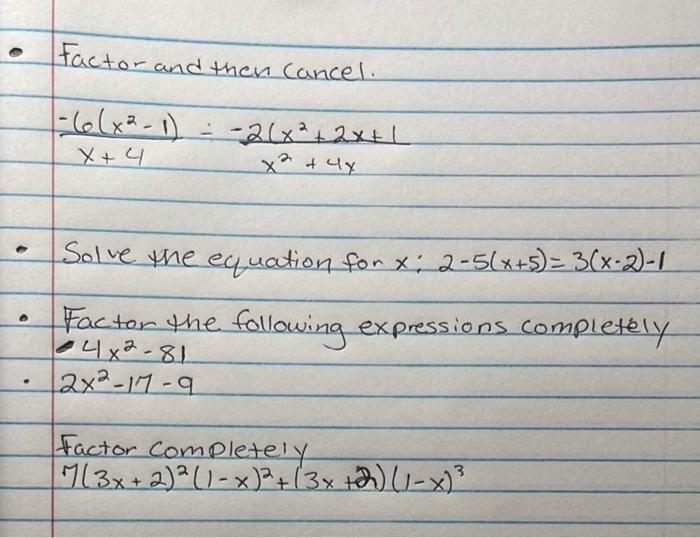 • Factor and then cancel.
-6(x² - 1) ÷ -2(x² + 2x + 1
x + 4 x² + 4x
• Solve the equation for x: 2-5(x+5)=3(x-2)-1
• Factor the following expressions completely
• 4x² - 81
• 2x² - 17 - 9
Factor completely
7(3x + 2)² (1 - x)² + (3x + 2) (1 - x)³